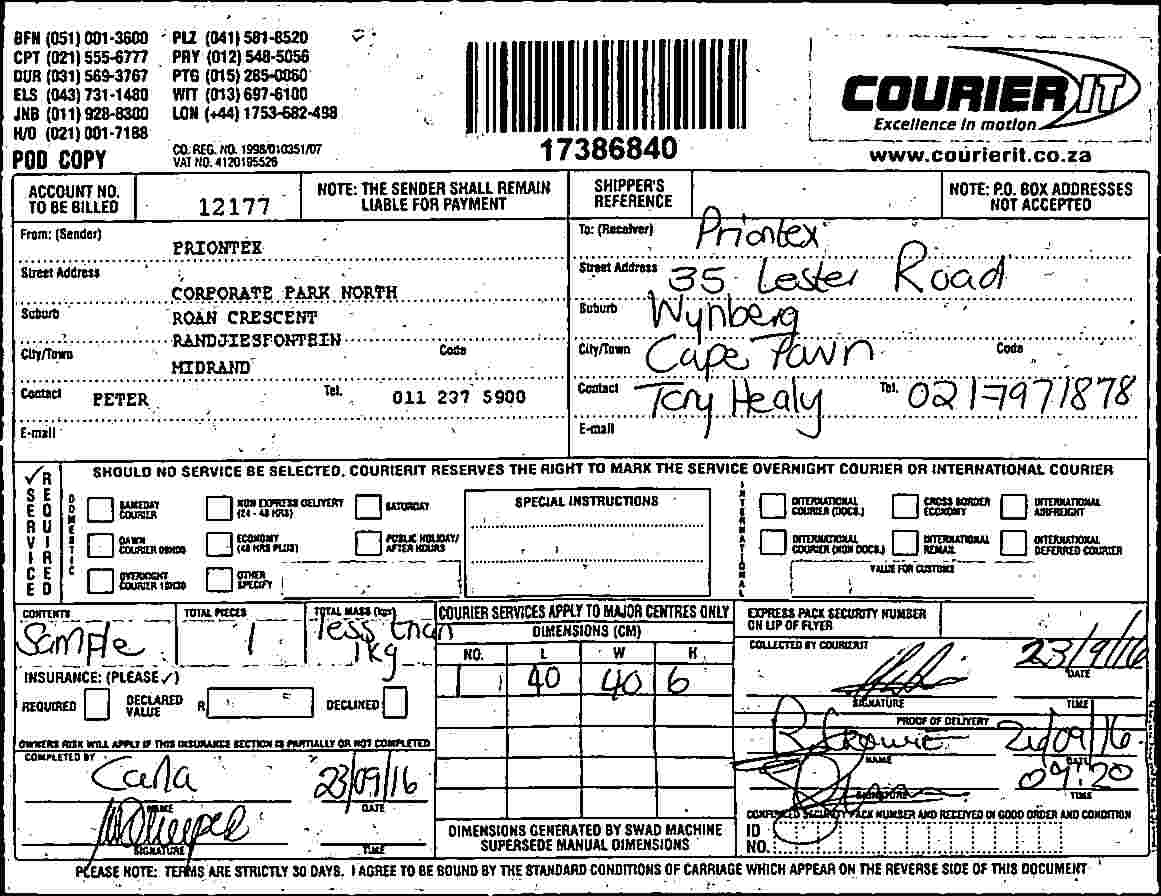 BFN (051) 001-3600 PLZ (041) 581-8520
CPT (021) 555-6777 PRY (012) 548-5056
DUR (031) 569-3767 PTG (015) 285-0060
ELS (043) 731-1480 WIT (013) 697-6100
JNB (011) 928-8300 LON (+44) 1753-682-498
H/O (021) 001-7188
POD COPY
CO. REG. NO. 1998/010351/07
VAT NO. 4120185526
17386840
COURIER IT
Excellence in motion
www.courierit.co.za
ACCOUNT NO. TO BE BILLED
12177
NOTE: THE SENDER SHALL REMAIN LIABLE FOR PAYMENT
SHIPPER'S REFERENCE
NOTE: P.O. BOX ADDRESSES NOT ACCEPTED
From: (Sender)
PRIONTEX
Street Address
CORPORATE PARK NORTH
Suburb
ROAN CRESCENT
RANDJIESFONTEIN
City/Town
Code
MIDRAND
Contact PETER Tel. 011 237 5900
E-mail
To: (Receiver) Priontex
Street Address 35 Lester Road
Suburb Wynberg
City/Town Cape Town Code
Contact Tony Healy Tel. 0217971878
E-mail
✓ SERVICE REQUIRED
SHOULD NO SERVICE BE SELECTED, COURIERIT RESERVES THE RIGHT TO MARK THE SERVICE OVERNIGHT COURIER OR INTERNATIONAL COURIER
DOMESTIC
SAMEDAY COURIER
NON EXPRESS DELIVERY (24 - 48 HRS)
SATURDAY
DAWN COURIER 09H00
ECONOMY (48 HRS PLUS)
PUBLIC HOLIDAY/ AFTER HOURS
OVERNIGHT COURIER 10H30
OTHER SPECIFY
SPECIAL INSTRUCTIONS
INTERNATIONAL
INTERNATIONAL COURIER (DOCS.)
CROSS BORDER ECONOMY
INTERNATIONAL AIRFREIGHT
INTERNATIONAL COURIER (NON DOCS.)
INTERNATIONAL REMAIL
INTERNATIONAL DEFERRED COURIER
VALUE FOR CUSTOMS
CONTENTS
Sample
TOTAL PIECES
1
TOTAL MASS (kgs)
less than
1kg
INSURANCE: (PLEASE ✓)
REQUIRED
DECLARED VALUE R
DECLINED
OWNERS RISK WILL APPLY IF THIS INSURANCE SECTION IS PARTIALLY OR NOT COMPLETED
COMPLETED BY
Carla
NAME
23/09/16
DATE
SIGNATURE
TIME
COURIER SERVICES APPLY TO MAJOR CENTRES ONLY
DIMENSIONS (CM)
NO. L W H
1 40 40 6
DIMENSIONS GENERATED BY SWAD MACHINE
SUPERSEDE MANUAL DIMENSIONS
EXPRESS PACK SECURITY NUMBER ON LIP OF FLYER
COLLECTED BY COURIERIT
23/9/16
DATE
SIGNATURE
TIME
PROOF OF DELIVERY
NAME
DATE
09:20
SIGNATURE
TIME
SECURITY PACK NUMBER AND RECEIVED IN GOOD ORDER AND CONDITION
ID NO.
PLEASE NOTE: TERMS ARE STRICTLY 30 DAYS. I AGREE TO BE BOUND BY THE STANDARD CONDITIONS OF CARRIAGE WHICH APPEAR ON THE REVERSE SIDE OF THIS DOCUMENT